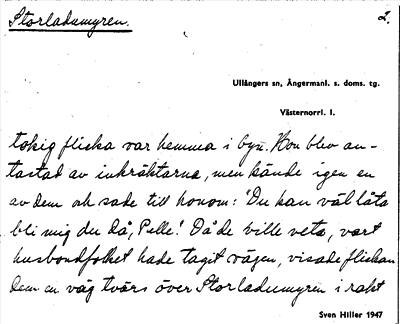 Storladumyren.
2.
Ullångers sn, Ångermanl. s. doms. tg.
Västernorrl. l.
tokig flicka var hemma i byn. Hon blev an-
tastad av inkräktarna, men kände igen en
av dem och sade till honom: "Du kan väl låta
bli mig du då, Pelle". Då de ville veta, vart
husbondfolket hade tagit vägen, visade flickan
dem en väg tvärs över Storladumyren i rakt
Sven Hiller 1947